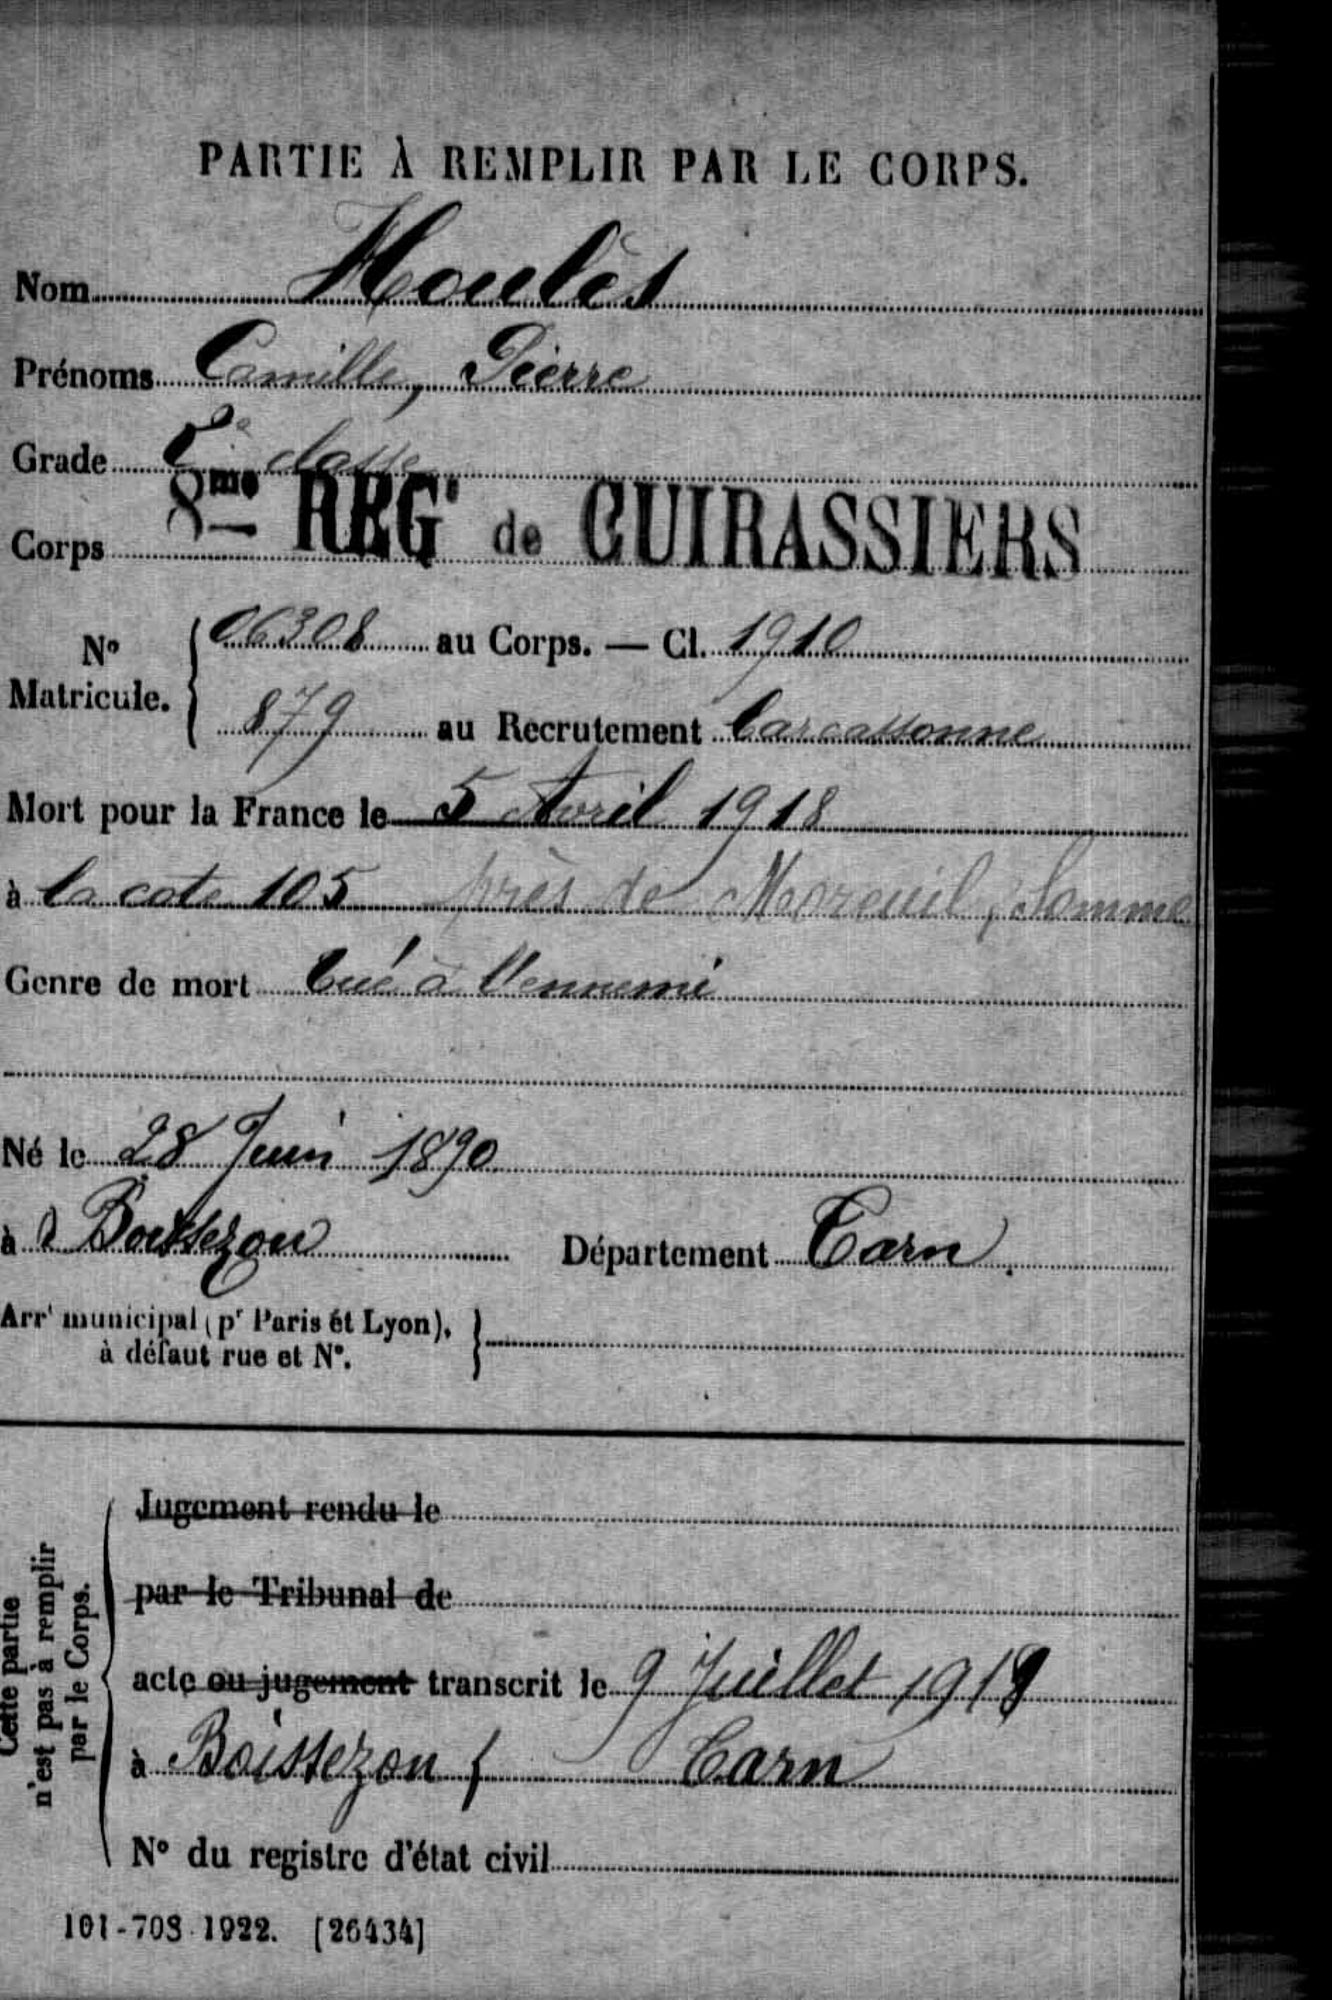 PARTIE À REMPLIR PAR LE CORPS.
Nom Moulès
Prénoms Camille, Pierre
Grade 2e classe
Corps 8me REGt de CUIRASSIERS
No Matricule. { 06308 au Corps. — Cl. 1910
879 au Recrutement Carcassonne
Mort pour la France le 5 Avril 1918
à la cote 105 près de Moreuil, Somme
Genre de mort tué à l'ennemi
Né le 28 Juin 1890
à Boissezon Département Tarn.
Arrt municipal (pr Paris et Lyon), }
à défaut rue et No.
Cette partie
n'est pas à remplir
par le Corps.
Jugement rendu le
par le Tribunal de
acte ou jugement transcrit le 9 Juillet 1918
à Boissezon, Tarn
No du registre d'état civil
101-708-1922. [26434]